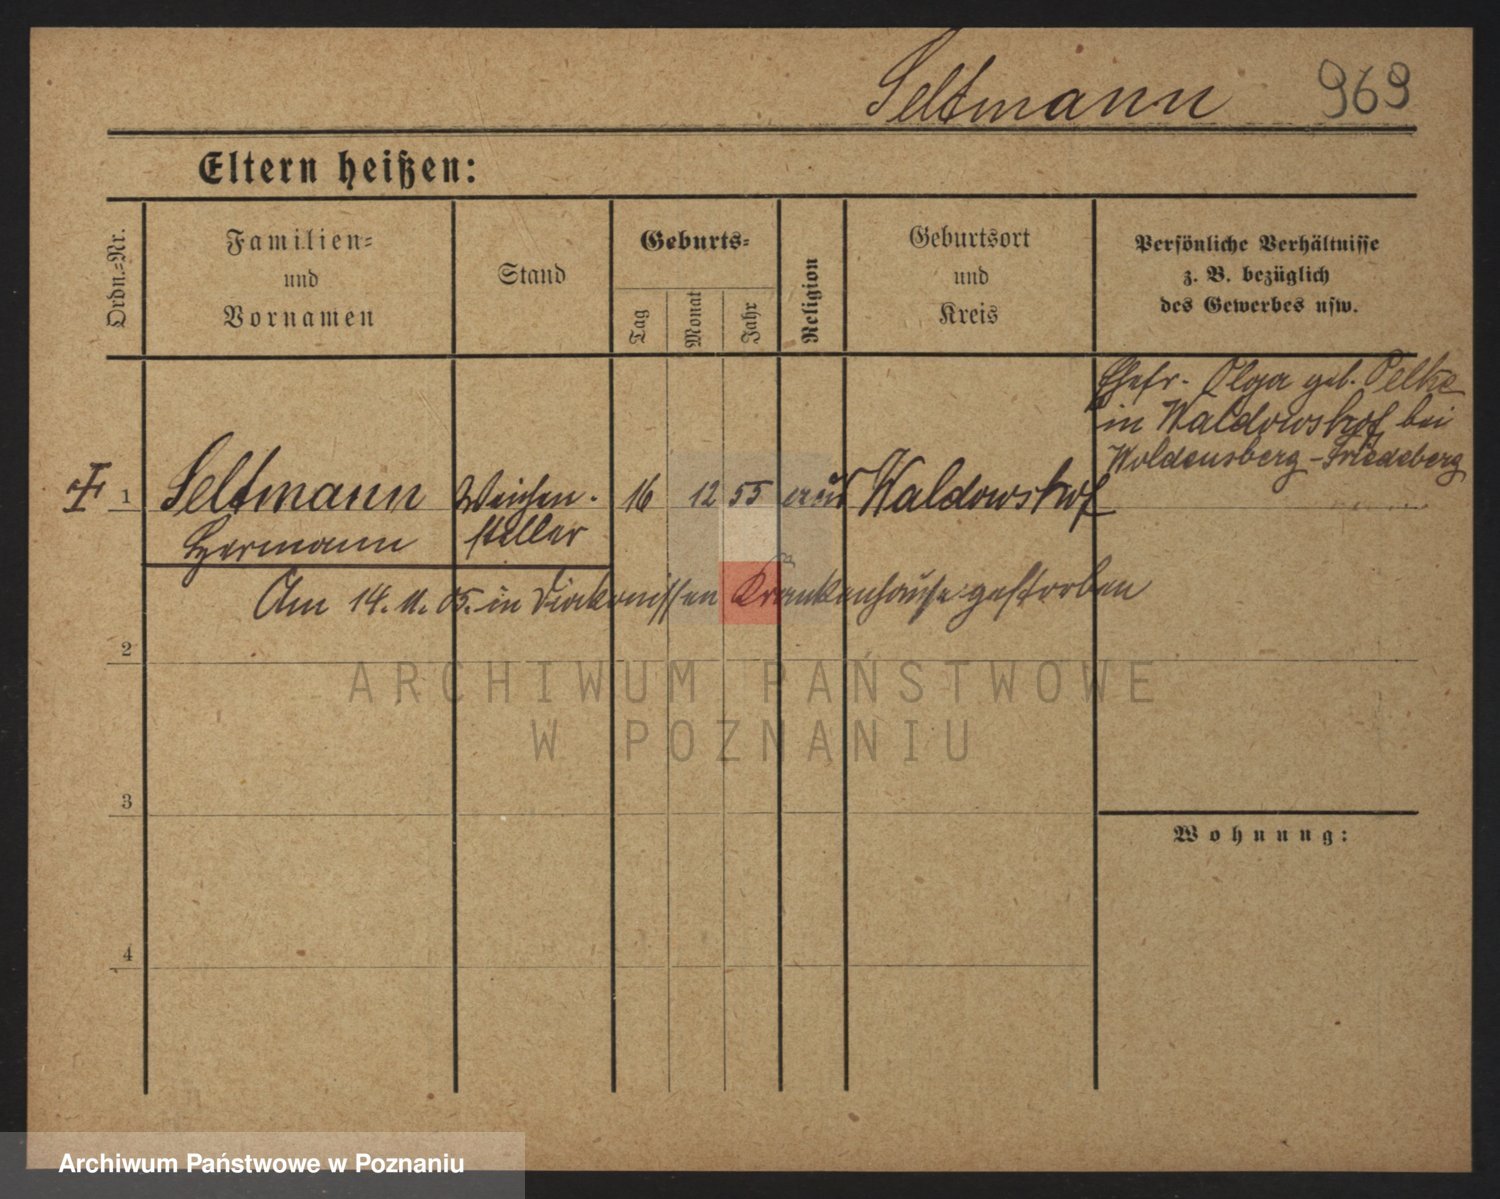 Seltmann 969
Eltern heißen:
Ordn.-Nr.
Familien-
und
Vornamen
Stand
Geburts-
Tag
Monat
Jahr
Religion
Geburtsort
und
Kreis
Persönliche Verhältnisse
z. B. bezüglich
des Gewerbes usw.
Ehefr. Olga geb. Pelke
in Waldowshof bei
Woldensberg-Friedeberg
1 Seltmann Weichen- 16 12 55 Waldowshof
Hermann steller
Am 14. 11. 05. in Diakonissen Krankenhause gestorben
2
ARCHIWUM PAŃSTWOWE
W POZNANIU
3
Wohnung:
4
Archiwum Państwowe w Poznaniu